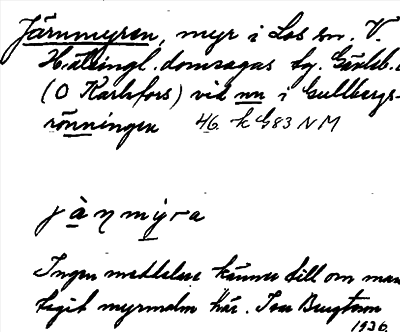 Järnmyren, myr i Los sn. V.
Hälsingl. domsagas tg. Gävleb.
(O Karlsfors) vid nn i Gullbergs-
rönningen 46. k G83 NM
jànmýra
Ingen meddelare känner till om man
tagit myrmalm här.
1936.